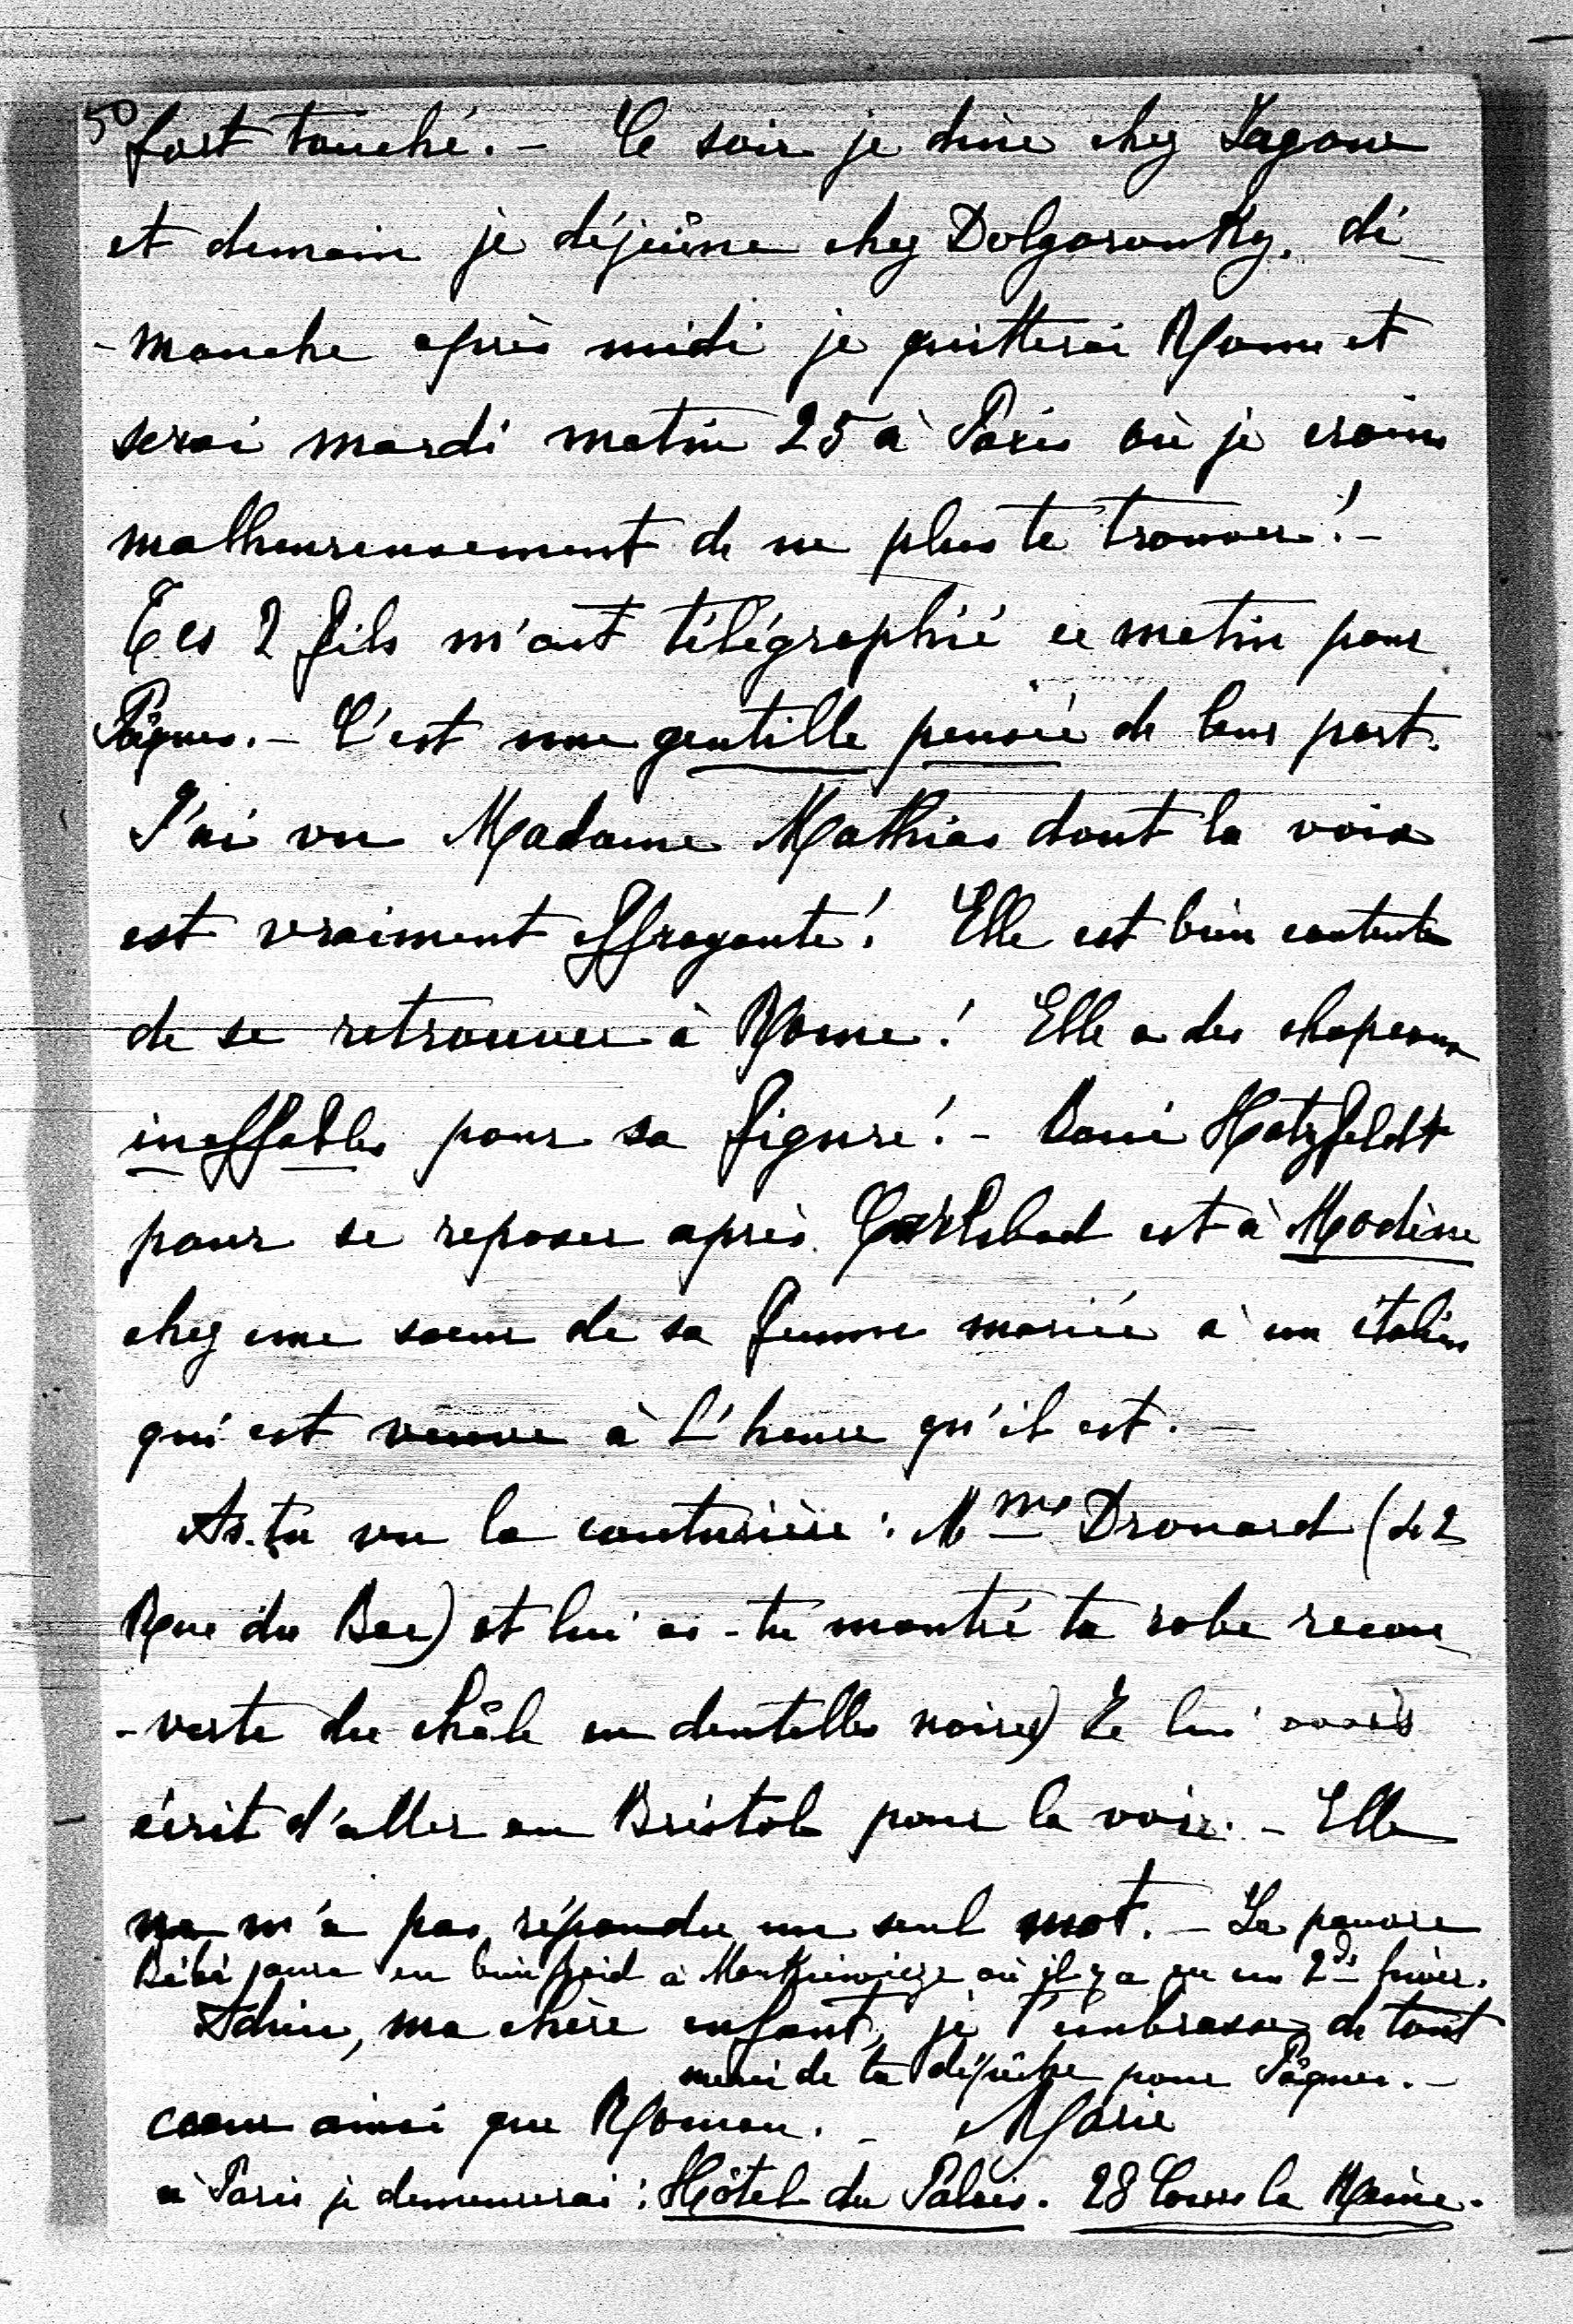 50
fort touché. - Ce soir je dîne chez
et demain je déjeûne chez Dolgorouky. di-
-manche après midi je quitterai Rome et
serai mardi matin 25 à Paris où je crains
malheureusement de ne plus te trouver! -
Tes 2 fils m'ont télégraphié ce matin pour
Pâques. - C'est une gentille pensée de leur part.
J'ai vu Madame Mathias dont la voix
est vraiment effrayante! Elle est bien contente
de se retrouver à Rome! Elle a des chapeaux
ineffables pour sa figure! - Hatzfeldt
pour se reposer après Carlsbad est à Modène
chez une soeur de sa femme mariée à un italien
qui est veuve à l'heure qu'il est. -
As-tu vu la couturière: Mme Drouard (
Rue du Bac) et lui as-tu montré ta robe recou-
-verte du châle en dentelles noires) Je lui avais
écrit d'aller au Bristol pour la voir. - Elle
ne m'a pas répondu un seul mot. - Le pauvre
Bébé aura eu bien froid à où il y a eu un 2d hiver.
Adieu, ma chère enfant, je t'embrasse de tout
merci de ta dépêche pour Pâques. -
coeur ainsi que Roman. - Marie
à Paris je demeurerai: Hôtel du Palais. 28 Cours la Reine.